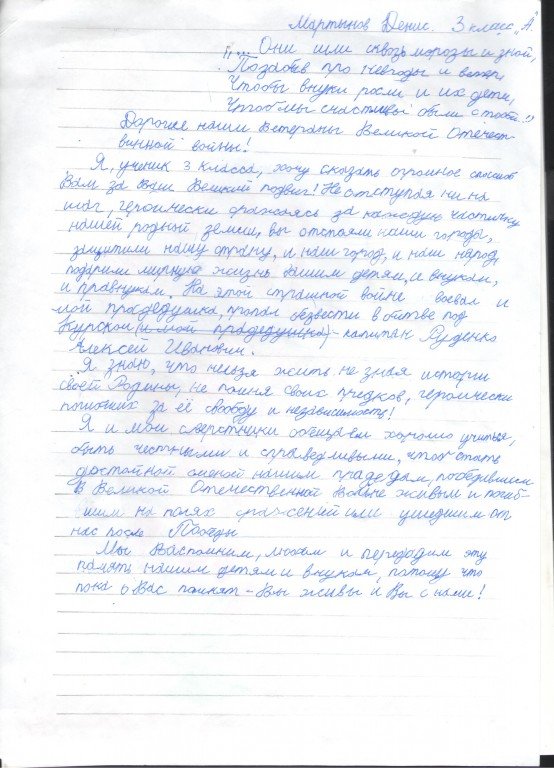 Мартынов Денис. 3 класс "А"
"... Они шли сквозь морозы и зной,
Позабыв про невзгоды и
Чтобы внуки росли и их дети,
Чтоб мы счастливы были с тобой..."
Дорогие наши Ветераны Великой Отечест-
винной войны!
Я, ученик 3 класса, хочу сказать огромное спасибо
Вам за Ваш Великий подвиг! Не отступая ни на
шаг, героически сражаясь за каждую частичку
нашей родный земли, вы отстояли наши города,
защитили нашу страну, и наш город, и наш народ,
подарили мирную жизнь Вашим детям, и внукам,
и правнукам. На этой страшной войне воевал и
мой прадедушка, пропал безвести в битве под
Курской (и мой прадедушка) - капитан Руденко
Алексей Иванович.
Я знаю, что нельзя жить не зная истории
своей Родины, не помня своих предков, героически
погибших за её свободу и независимость!
Я и мои сверстники обещаем хорошо учиться,
быть честными и справедливыми, чтоб стать
достойной сменой нашим прадедам, победившим
в Великой Отечественной Войне живым и погиб-
шим на полях сражений или ушедшим от
нас после Победы
Мы Вас помним, любим и передадим эту
память нашим детям и внукам, потому что
пока о Вас помнят - Вы живы и Вы с нами!